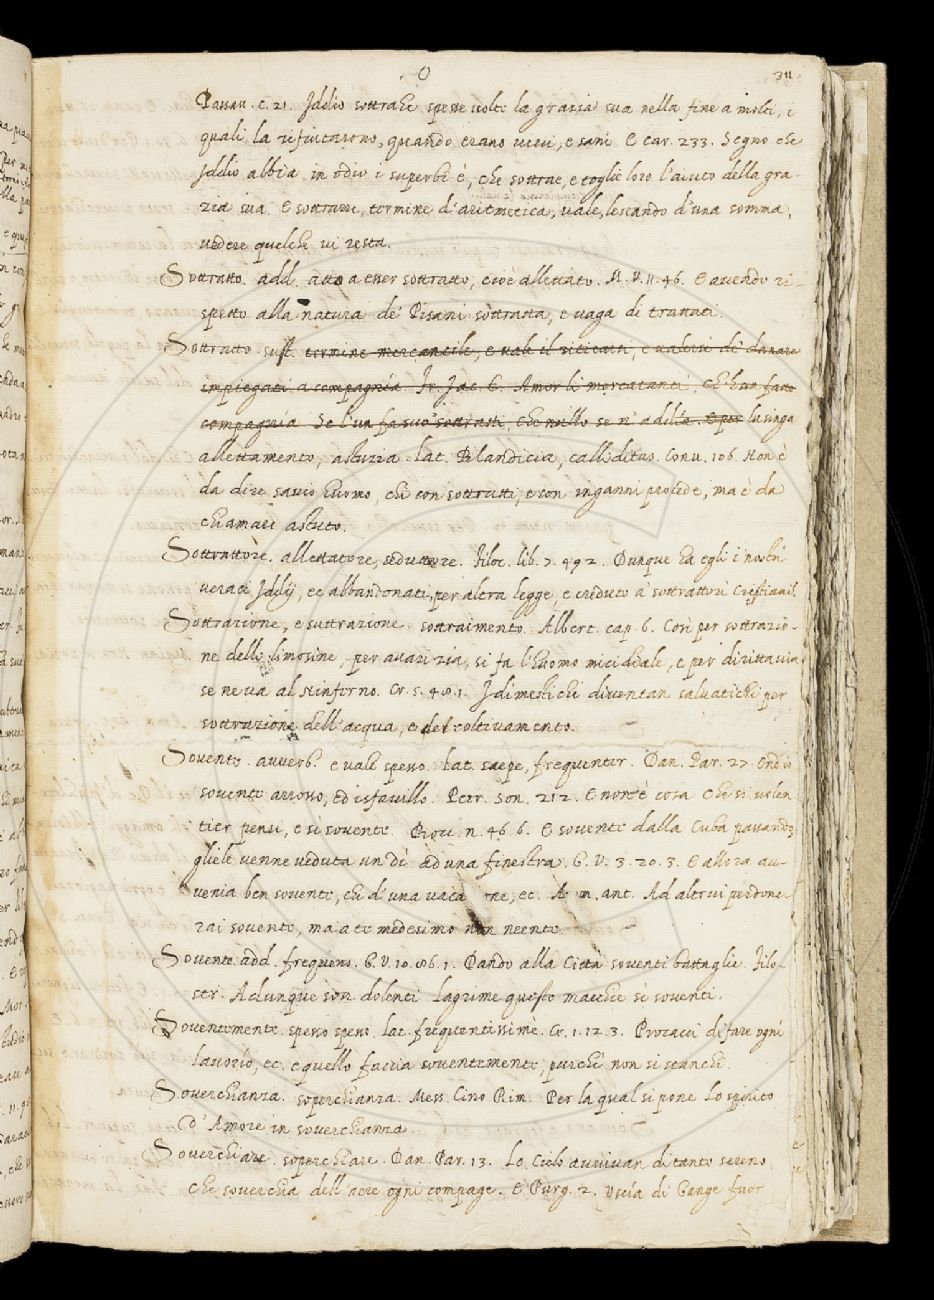 O
311.
Passau. c. 21. Iddio sottrahe spesse volte la grazia sua nella fine a molti, i
quali la rifiutarono, quando erano vivi, e sani. E car. 233. Segno che
Iddio abbia in odio i superbi è, che sottrae, e toglie loro l'aiuto della gra-
zia sua. E sottrarre, termine d'aritmetica, vale, levando d'una somma,
vedere quelche vi resta.
Sottratto. add. atto a esser sottratto, cioè allettato. M. V. 11. 46. E avendo ri-
spetto alla natura de' Pisani sottratta, e vaga di trattati.
Sottratto sust. termine mercantile, e vale il ritirarsi, e valersi de' danari
impiegati a compagnia Fr. Jac. C. Amor li mercatanti, Ch'han fatto
compagnia Se l'un fa suo sottratti, Che nullo se n'addìa. E per lusinga
allettamento, astuzia. lat. Blandicia, calliditas. Conv. 106. Non è
da dire savio huomo, chi con sottratti, e con inganni procede, ma è da
chiamare astuto.
Sottrattòre. allettatore, seduttore. Filoc. lib. 7. 492. Dunque ha egli i nostri
veraci Iddij, ec abbandonati, per altra legge, e creduto a sottrattori Cristiani.
Sottrazione, e suttrazione. sottraimento. Albert. cap. 6. Così per sottrazio-
ne delle limosine, per avarizia, si fa l'huomo micidiale, e per dirittavia
se ne va al Ninferno. Cr. 5. 48. 1. I dimestichi diventan salvatichi per
sottrazione dell'acqua, e del coltivamento.
Sovente. avverb. e vale spesso. Lat. saepe, frequenter. Dan. Par. 27. Ond'io
sovente arrosso, ed isfavillo. Petr. Son. 212. E non è cosa che si volen
tier pensi, e sì sovente. Bocc. n. 46. 6. E sovente dalla Cuba passando
gliele venne veduta un dì ad una finestra. G. V. 3. 20. 3. E allora au-
venia ben sovente, che d'una ne, ec. ant. Ad altrui perdone-
rai sovente, ma a te medesimo non neente.
Sovente. add. frequens. G. V. 10. 86. 1. Dando alla Città soventi battaglie. Filo-
str. Adunque son dolenti lagrime queste macchie sì soventi.
Soventemente. spesso spesso. lat. frequentissimè. Cr. 1. 12. 3. Procacci di fare ogni
lavorio, ec. e quello faccia soventemente, purchè non si stanchi.
Soverchianza. soperchianza. Mess. Cino Rim. Per la qual si pone Lo spirito
D'Amore in soverchianza.
Soverchiare. soperchiare. Dan. Par. 13. Lo Cielo avvivan di tanto sereno,
che soverchia dell'aere ogni compage. E Purg. 2. Uscìa di Gange fuor